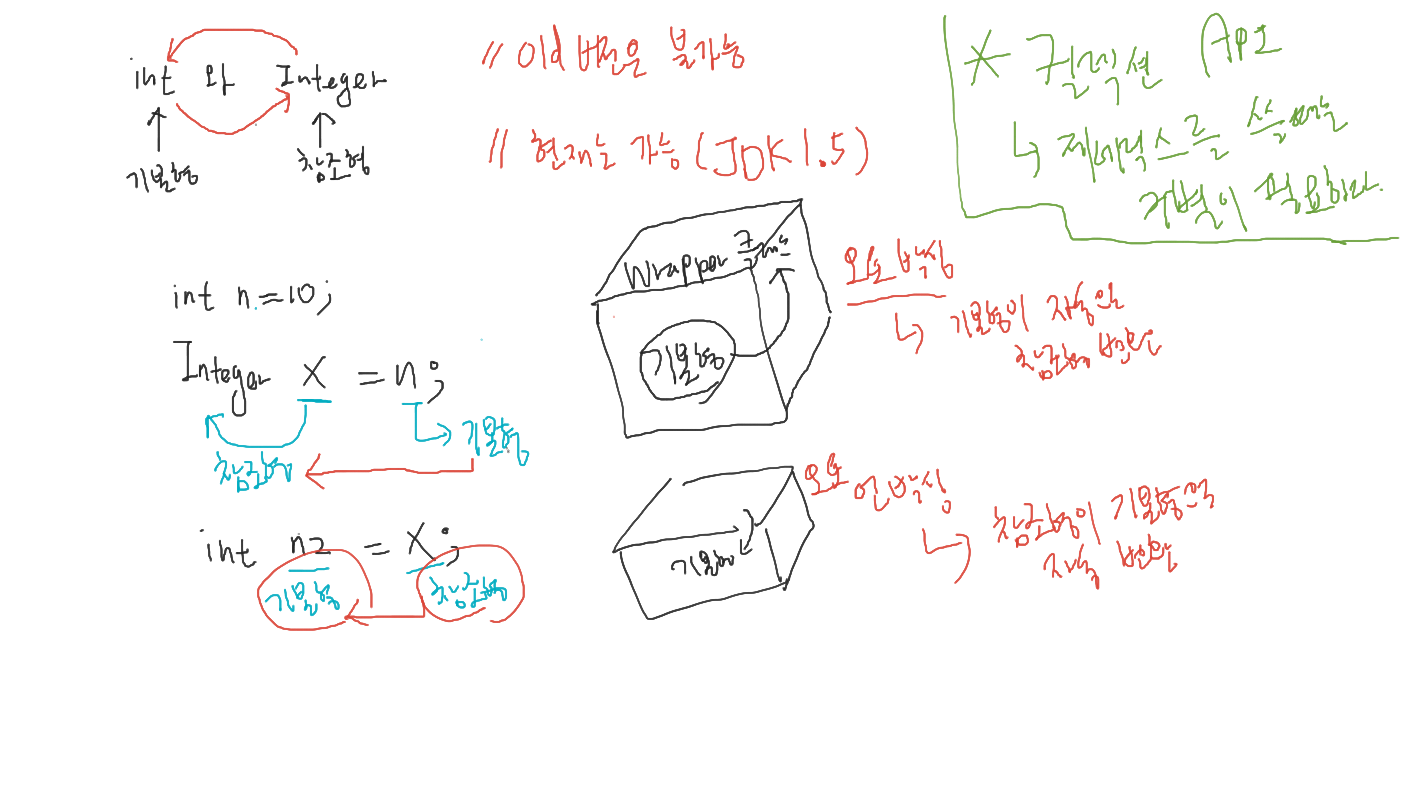 int 와 Integer
기본형
참조형
// old 버전은 불가능
// 현재는 가능 (JDK 1.5)
* 컬렉션 API
↳ 제네릭스를 쓸때는
개별이 필요하다.
int n = 10;
Integer x = n;
기본형
참조형
int n2 = x;
기본형
참조형
Wrapper
기본형
오토 박싱
↳ 기본형이 자동으로
참조형 변환
기본형
오토 언박싱
↳ 참조형이 기본형으로
자동 변환